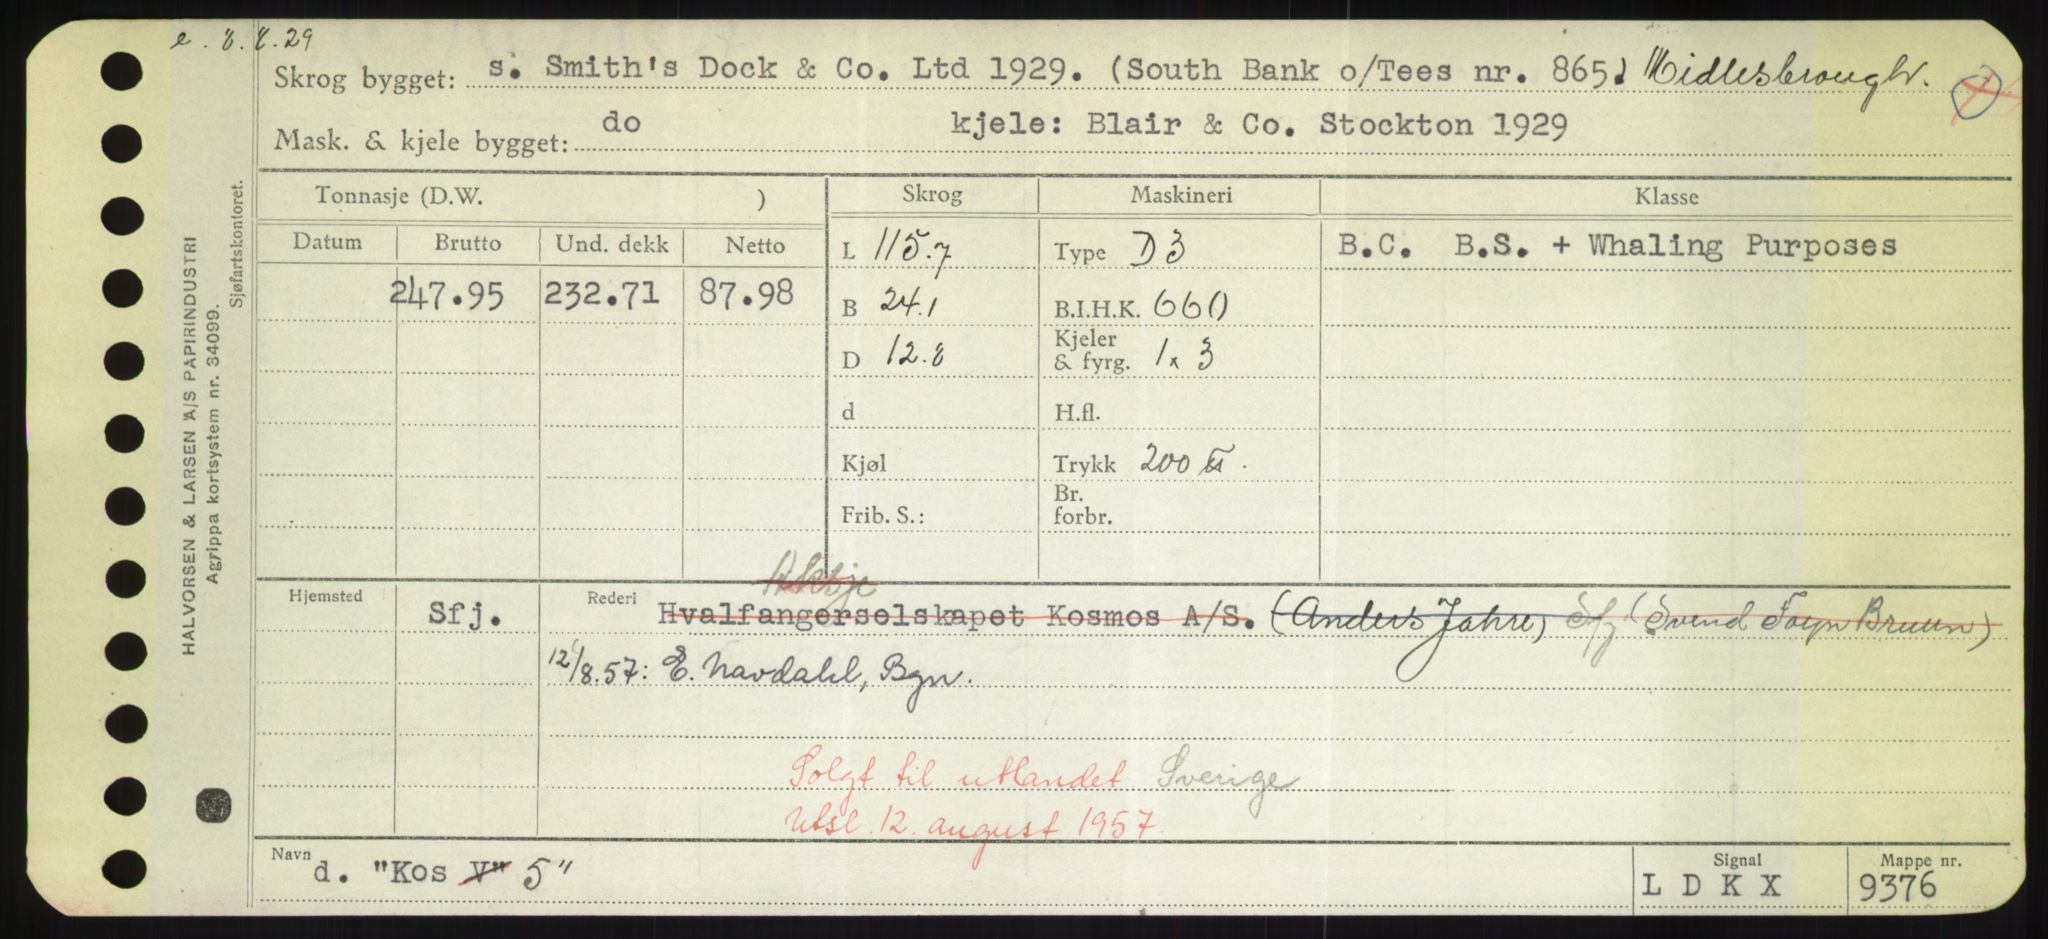 e. 8.8.29
Skrog bygget: s. Smith's Dock & Co. Ltd 1929. (South Bank o/Tees nr. 865) Midlesbrough.
Mask. & kjele bygget: do kjele: Blair & Co. Stockton 1929
Tonnasje (D.W. ) Skrog Maskineri Klasse
Datum Brutto Und. dekk Netto L 115.7 Type D3 B.C. B.S. + Whaling Purposes
247.95 232.71 87.98 B 24.1 B.I.H.K. 660
D 12.8 Kjeler & fyrg. 1 x 3
d H.fl.
Kjøl Trykk 200 lb.
Frib. S.: Br. forbr.
Aksje
Hjemsted Sfj. Rederi Hvalfangerselskapet Kosmos A/S. (Anders Jahre) Sfj (Svend Foyn Bruun)
12/8.57: E. Navdahl, Bgn.
Solgt til utlandet Sverige
Utsl. 12. august 1957.
Navn d. "Kos V" 5" Signal LDKX Mappe nr. 9376
HALVORSEN & LARSEN A/S PAPIRINDUSTRI
Agrippa kortsystem nr. 34099.
Sjøfartskontoret.